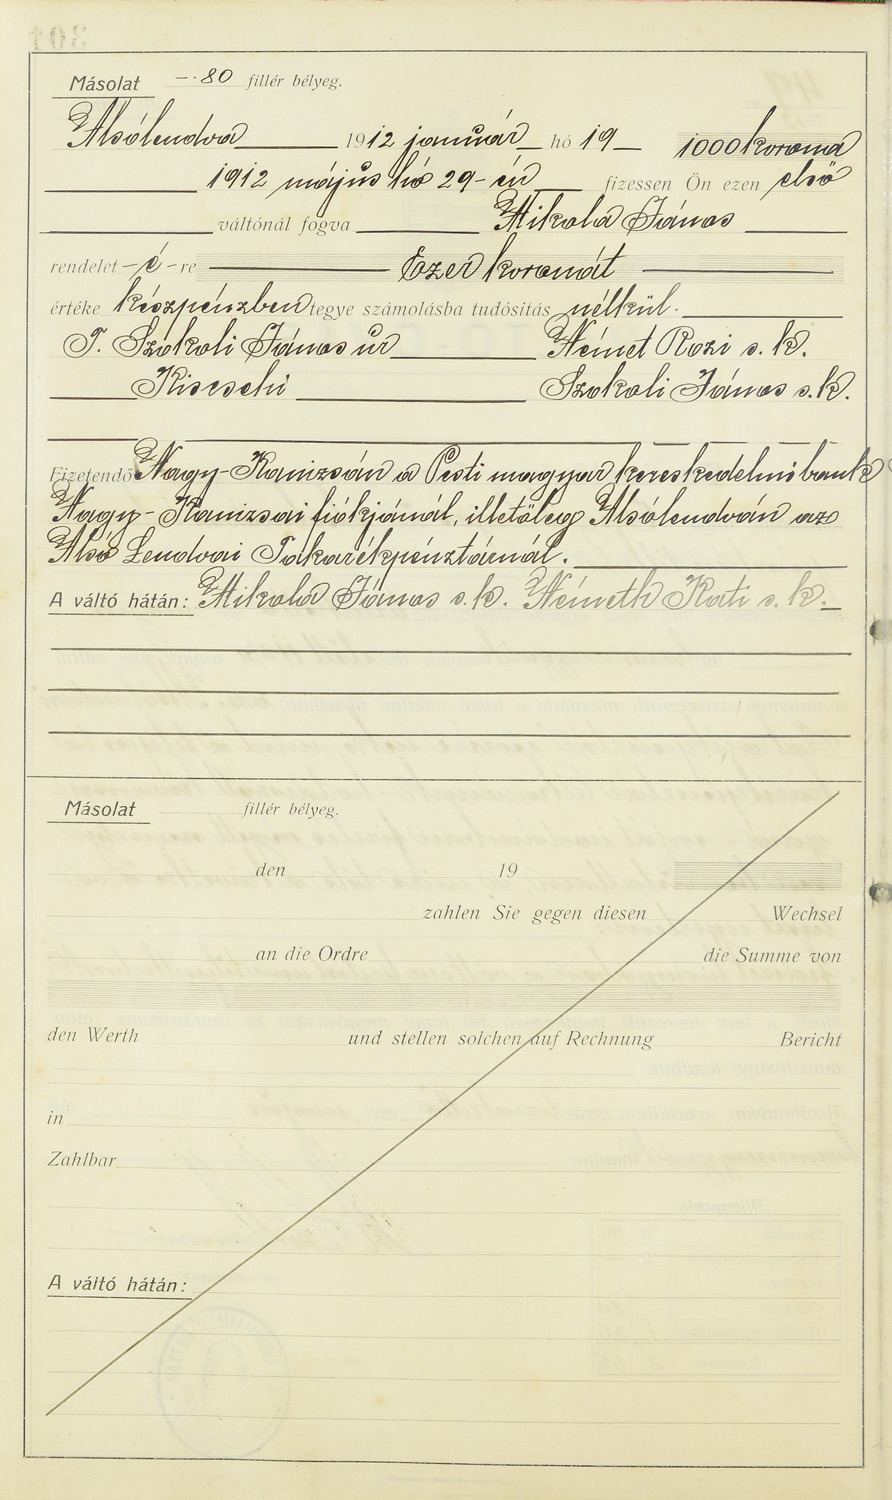 Másolat -.80 fillér bélyeg.
Alsólendva 1912 január hó 19 1000 korona
1912 május hó 29-én fizessen Ön ezen első
váltónál fogva Mikola János
rendelet-é-re Ezer koronát
értéke készpénzben tegye számolásba tudósítás nélkül.
T. Szokoli János úr Német Rozi s. k.
Kiscsehi Szokoli János s. k.
Fizetendő Nagy-Kanizsán a Pesti magyar kereskedelmi bank
Nagy-Kanizsai fiókjánál, illetőleg Alsólendván az
Alsó Lendvai Takarékpénztárnál.
A váltó hátán: Mikola János s. k. Németh Kati s. k.
Másolat fillér bélyeg.
den 19
zahlen Sie gegen diesen Wechsel
an die Ordre die Summe von
den Werth und stellen solchen auf Rechnung Bericht
in
Zahlbar
A váltó hátán: